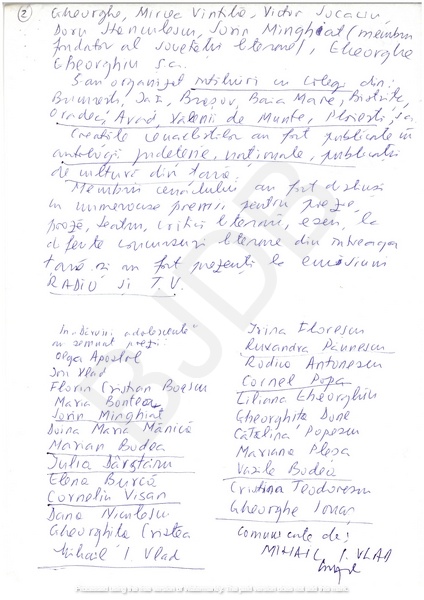 2
Gheorghe, Mircea Vintilă, Victor Socaciu,
Doru Stănculescu, Sorin Minghiat (membru
fondator al societății literare), Gheorghe
Gheorghiu ș.a.
S-au organizat întâlniri cu colegi din:
București, Iași, Brașov, Baia Mare, Bistrița,
Oradea, Arad, Vălenii de Munte, Ploiești, ș.a.
Creațiile cenacliștilor au fost publicate în
antologii județene, naționale, publicații
de cultură din țară.
Membrii cenaclului au fost distinși
cu numeroase premii pentru poezie,
proză, teatru, critică literară, eseu, la
diferite concursuri literare din întreaga
țară și au fost prezenți la emisiuni
RADIO și T.V.
In "Dăruiri adolescentine"
au semnat poezii:
Olga Apostol
Ion Vlad
Florin Cristian Boescu
Maria Bontea
Sorin Minghiat
Doina Maria Mănică
Marian Bodea
Iulia
Elena Burcă
Corneliu Vișan
Dana Niculescu
Gheorghița Cristea
Mihail I. Vlad
Irina Florescu
Ruxandra Păunescu
Rodica Antonescu
Cornel Popa
Liliana Gheorghiu
Gheorghița Done
Cătălina Popescu
Mariana Pleșa
Vasile Bodea
Cristina Teodorescu
Gheorghe Ionaș
Comunicate de:
MIHAIL I. VLAD
BJDB